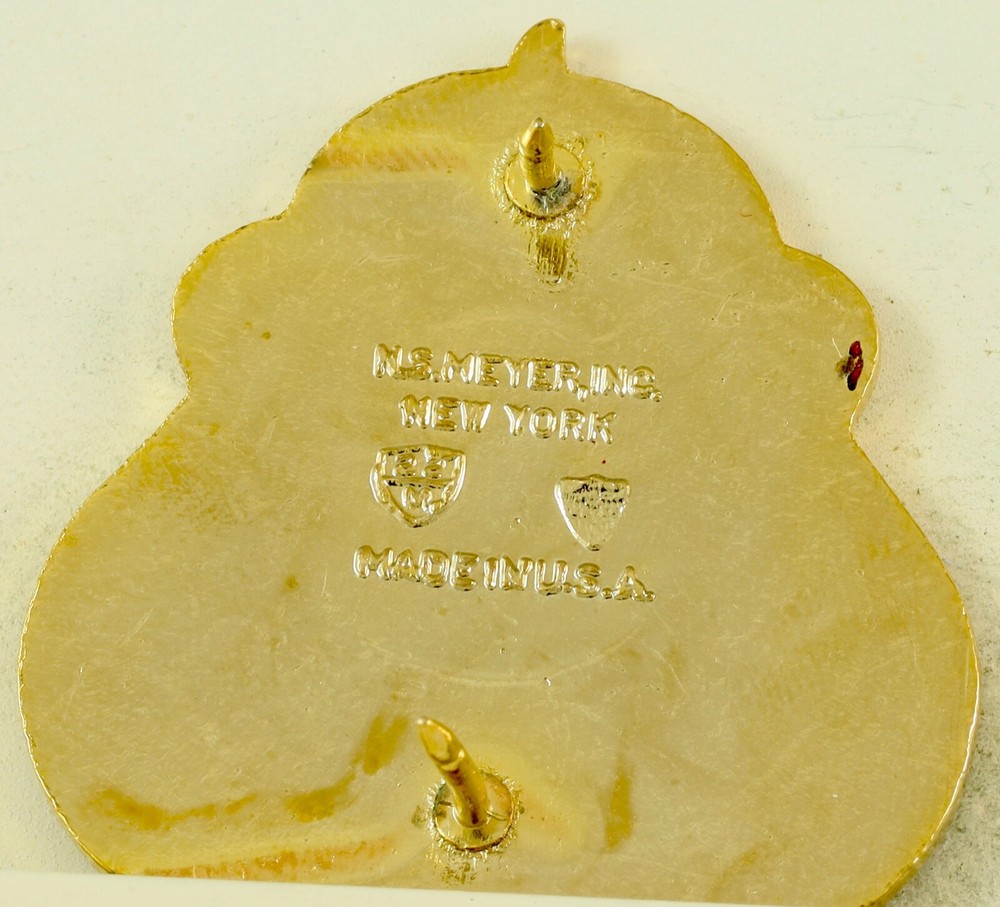 N.S. MEYER, INC.
NEW YORK
22
M
MADE IN U.S.A.